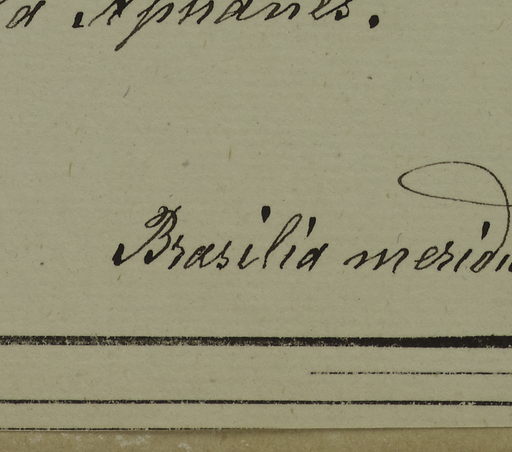 Aphanes.
Brasilia meridi